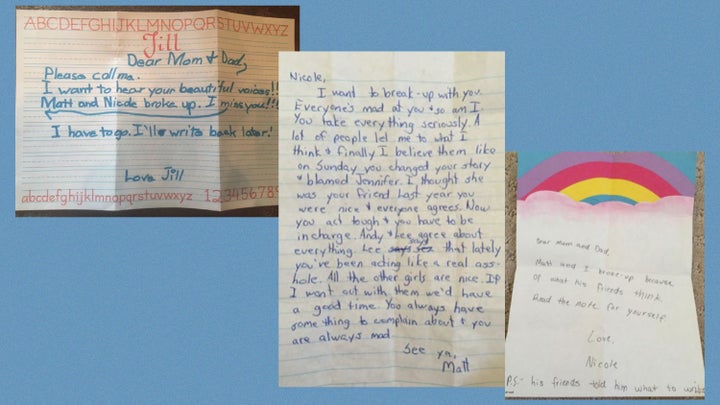 ABCDEFGHIJKLMNOPQRSTUVWXYZ
Jill
Dear Mom & Dad,
Please call me.
I want to hear your beautiful voices!!
Matt and Nicole broke up. I miss you!!!
I have to go. I'll write back later!
Love Jill
abcdefghijklmnopqrstuvwxyz 123456789
Nicole,
I want to break-up with you.
Everyone's mad at you & so am I.
You take everything seriously. A
lot of people led me to what I
think & finally I believe them like
on Sunday you changed your story
& blamed Jennifer. I thought she
was your friend. Last year you
were nice & everyone agrees. Now
you act tough & you have to be
in charge. Andy & Lee agree about
everything. Lee says that lately
you've been acting like a real ass-
hole. All the other girls are nice. If
I went out with them we'd have
a good time. You always have
some thing to complain about & you
are always mad.
See ya,
Matt
Dear Mom and Dad,
Matt and I broke up because
of what his friends think.
Read the note for yourself.
Love,
Nicole
P.S.- his friends told him what to write